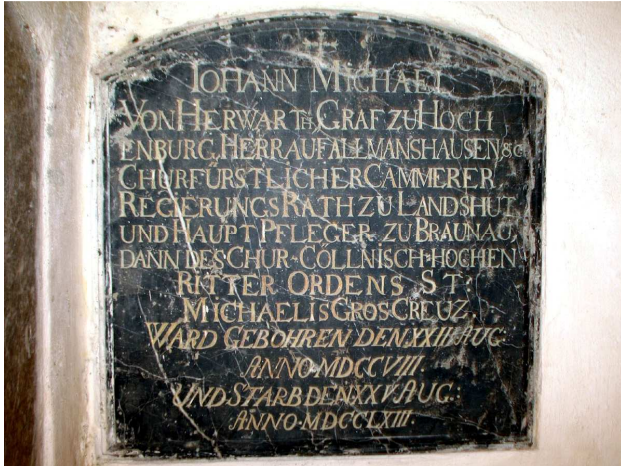 IOHANN MICHAEL
VON HERWARTH, GRAF ZU HOCH
ENBURG, HERR AUF ALLMANSHAUSEN &c
CHURFÜRSTLICHER CAMMERER
REGIERUNGS RATH ZU LANDSHUT,
UND HAUPT PFLEGER ZU BRAUNAU,
DANN DES CHUR-CÖLLNISCH-HOCHEN
RITTER ORDENS ST:
MICHAELIS GROS CREUZ.
WARD GEBOHREN DEN XXIII AUG:
ANNO MDCCVIII.
UND STARB DEN XXV AUG:
ANNO MDCCLXIII.